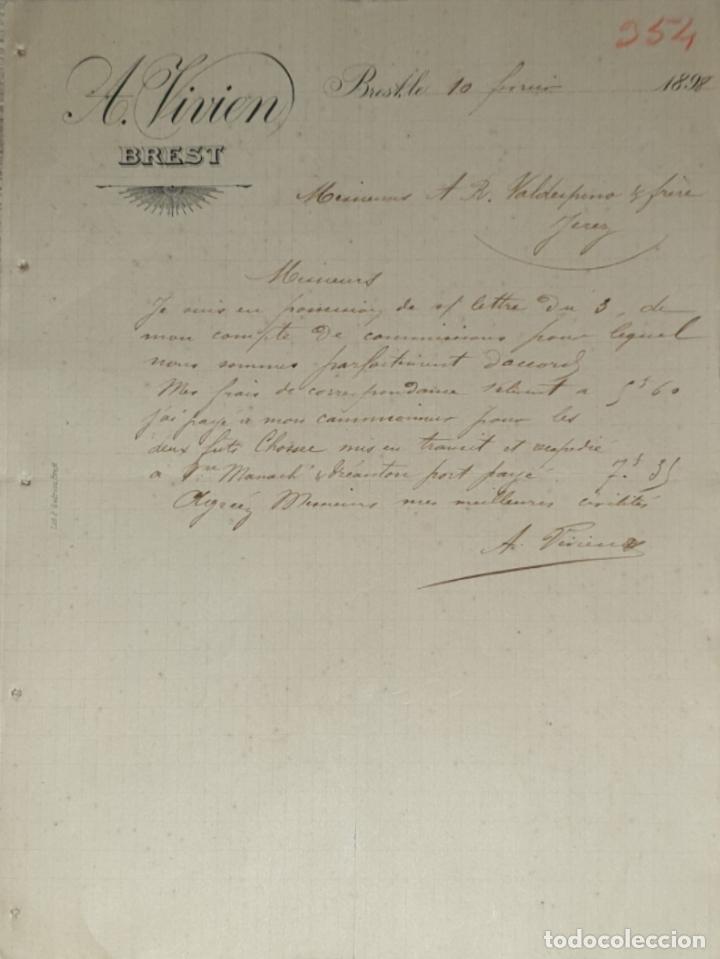 354
A. Vivien
BREST
Brest, le 10 février 1898
Messieurs A R. Valdespino & frère
Jerez
Messieurs
Je suis en possession de v/ lettre du 3, de
mon compte de commissions pour lequel
nous sommes parfaitement d'accord
Mes frais de correspondance s'élèvent a 5f 60
j'ai payé à mon camionneur pour les
deux futs mis en transit et expedié
à Manach & port payé. 7f 35
Agréez Messieurs mes meilleures civilités
A. Vivien
todocoleccion.net